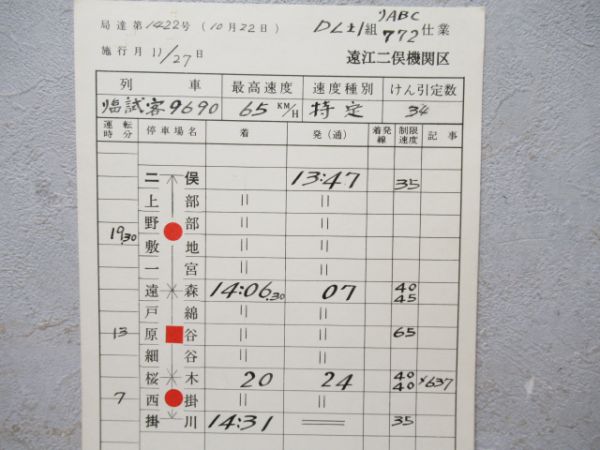 局達第1422号 (10月22日) DL土1組 ツABC 772仕業
施行月 11/27日 遠江二俣機関区
列 車 最高速度 速度種別 けん引定数
臨試客9690 65 KM/H 特定 34
運転時分 停車場名 着 発(通) 着発線 制限速度 記事
二俣 13:47 35
上部 〃 〃
19.30 野部 〃 〃
敷地 〃 〃
一宮 〃 〃
遠森 14:06.30 07 40 45
戸綿 〃 〃
13 原谷 〃 〃 65
細谷 〃 〃
桜木 20 24 40 40 ㄨ637
7 西掛 〃 〃
掛川 14:31 35